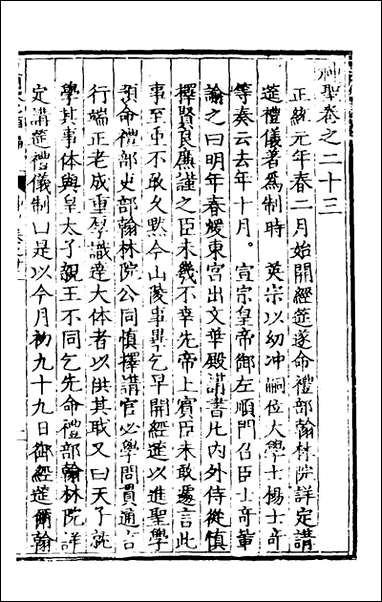 神聖卷之二十三
正統元年春二月始開經筵遂命禮部翰林院詳定講
筵禮儀著爲制時 英宗以幼冲嗣位大學士楊士竒
等奏云去年十月。 宣宗皇帝御左順門召臣士竒軰
諭之曰明年春煖東宮出文華殿講書凡内外侍從慎
擇賢良廉謹之臣未幾不幸先帝上賓臣未敢遽言此
事至重不敢久黙今山陵事畢乞早開經筵以進聖學
預命禮部吏部翰林院公同慎擇講官必學問貫通言
行端正老成重厚識達大体者以供其職又曰天子就
學其事体與皇太子親王不同乞先命禮部翰林院詳
定講筵禮儀制曰是以今月初九十九日御經筵爾翰